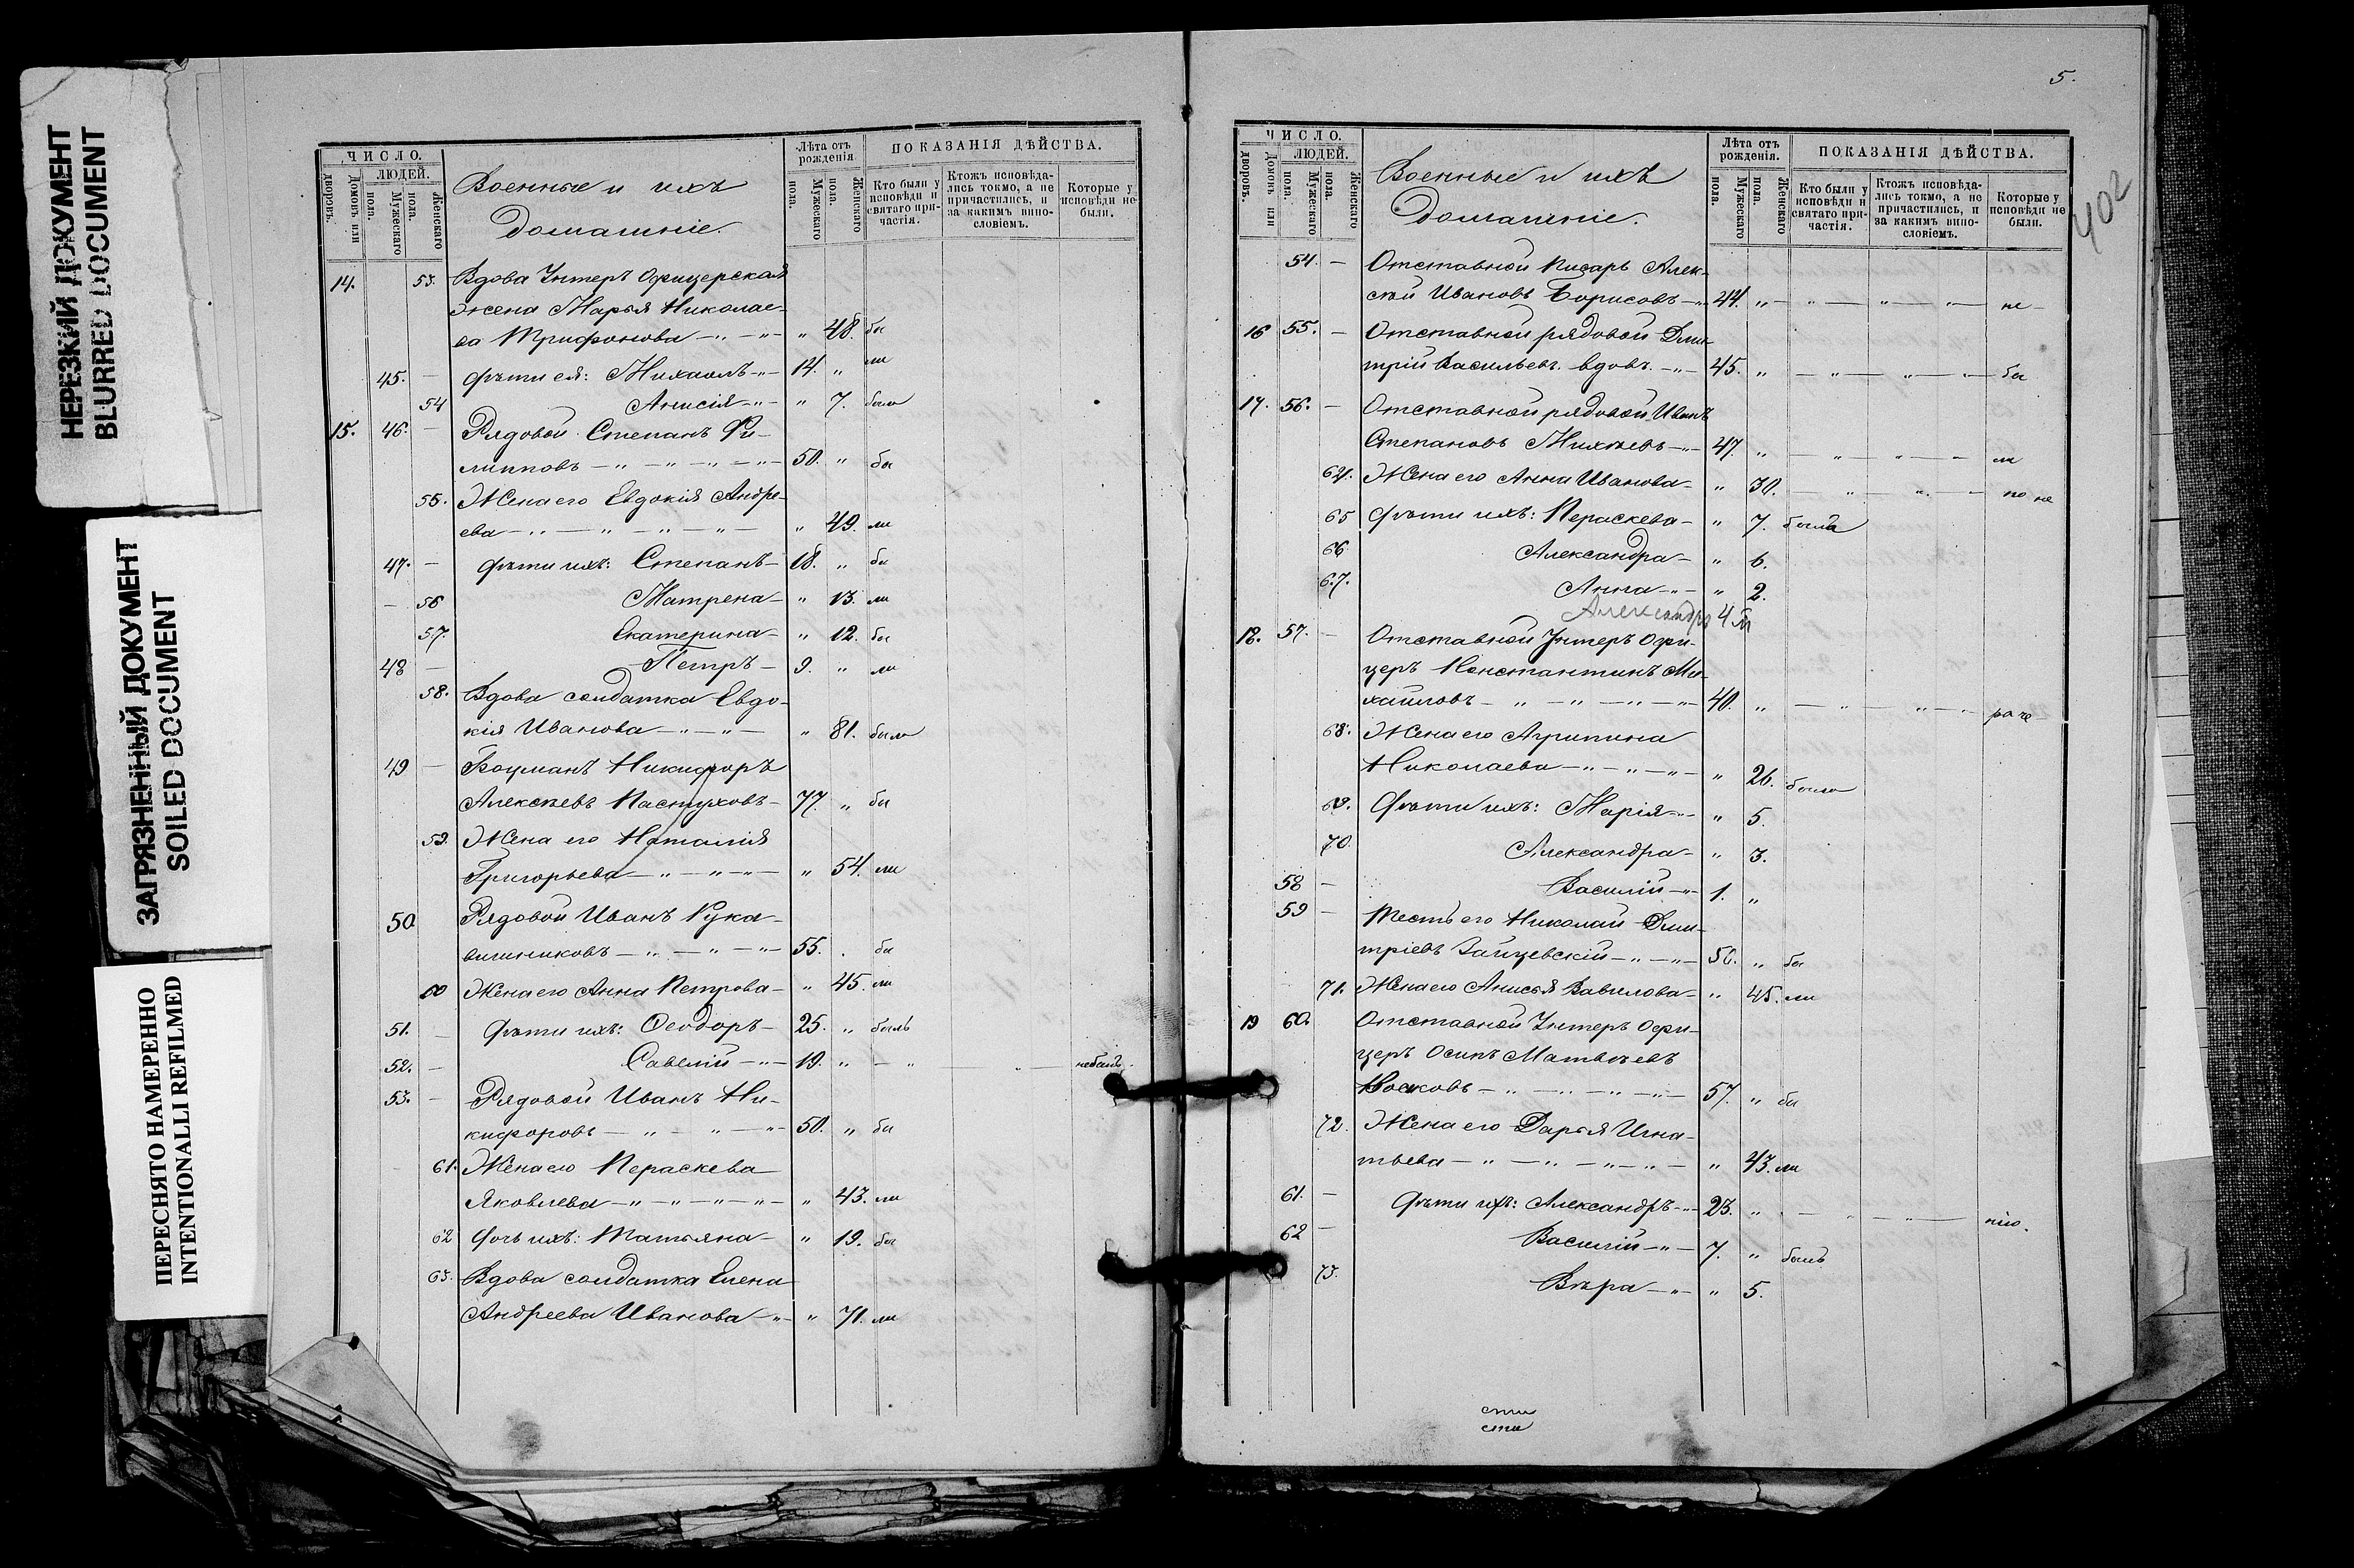 НЕРЕЗКИЙ ДОКУМЕНТ
BLURRED DOCUMENT
ЗАГРЯЗНЕННЫЙ ДОКУМЕНТ
SOILED DOCUMENT
ПЕРЕСНЯТО НАМЕРЕННО
INTENTIONALLI REFILMED
ЧИСЛО. Лѣта отъ рожденія. ПОКАЗАНІЯ ДѢЙСТВА.
ЛЮДЕЙ.
дворовъ. Домовъ или
Мужескаго пола.
Женскаго пола.
Военные и ихъ
Домашніе.
Мужескаго пола.
Женскаго пола.
Кто были у исповѣди и святаго причастія.
Ктожъ исповѣдались токмо, а не причастились, и за какимъ винословіемъ.
Которые у исповѣди не были.
14. 53. Вдова Унтеръ Офицерская
жена Марья Николае-
ва Трифонова - „ - „ - „ 48. бы
45. - Дѣти ея: Михаилъ - „ - 14. „ ли
54 Анисія - „ - „ 7. была
15. 46. - Рядовой Степанъ Фи-
липповъ - „ - „ - „ - „ - 50. „ бы
55. Жена его Евдокія Андре-
ева - „ - „ - „ - „ - „ 49. ли
47. - Дѣти ихъ: Степанъ - 18. „ бы
- 56 Матрена - „ 13. ли
57. Екатерина - „ 12. бы
48 - Петръ - 9. „ ли
58. Вдова солдатка Евдо-
кія Иванова - „ - „ - „ 81. была
49 - Боцманъ Никифоръ
Алексѣевъ Пастуховъ - 77. „ бы
59. Жена его Наталія
Григорьева - „ - „ - „ - „ 54. ли
50 Рядовой Иванъ Рука-
вишниковъ - „ - „ - „ - 55. . бы
60 Жена его Анна Петрова - „ 45. ли
51. - Дѣти ихъ: Ѳеодоръ - 25. „ былъ
52. - Савелій - „ - 19. „ - „ - „ - небылъ.
53. - Рядовой Иванъ Ни-
кифоровъ - „ - „ - „ - 50. „ бы
61. Жена его Параскева
Яковлева - „ - „ - „ - „ - „ 43. ли
62 Дочь ихъ: Татьяна - „ 19. бы
63. Вдова солдатка Елена
Андреева Иванова - „ - „ 71. ли
5.
402
ЧИСЛО. Лѣта отъ рожденія. ПОКАЗАНІЯ ДѢЙСТВА.
ЛЮДЕЙ.
дворовъ. Домовъ или
Мужескаго пола.
Женскаго пола.
Военные и ихъ
Домашніе.
Мужескаго пола.
Женскаго пола.
Кто были у исповѣди и святаго причастія.
Ктожъ исповѣдались токмо, а не причастились, и за какимъ винословіемъ.
Которые у исповѣди не были.
54. - Отставной писарь Алек-
сѣй Ивановъ Борисовъ - „ 44. „ - „ - „ - „ - не -
16 55. - Отставной рядовой Дми-
трій Васильевъ вдовъ. - „ - 45. „ - „ - „ - „ - бы
17. 56. - Отставной рядовой Иванъ
Степановъ Михѣевъ - „ - 47. „ - „ - „ - „ - ли
64. Жена его Анна Иванова - „ 30. - „ - „ - по не
65 Дѣти ихъ: Параскева - „ 7. была
66 Александра - „ 6.
67. Анна - „ - „ 2.
Александръ 4 м
18. 57. - Отставной Унтеръ Офи-
церъ Константинъ Ми-
хайловъ - „ - „ - „ - „ - 40. „ - „ - „ -
68. Жена его Агрипина
Николаева - „ - „ - „ - „ 26. была
69. Дѣти ихъ: Марія - „ - „ 5.
70. Александра - „ 3.
58 - Василій - „ - 1. „
59 - Тесть его Николай Дми-
тріевъ Зайцевскій - „ - „ - 50. „ бы
71. Жена его Анисья Вавилова - „ 45. ли
19 60. Отставной Унтеръ Офи-
церъ Осипъ Матвѣевъ
Носковъ - „ - „ - „ - „ - 57. „ бы
72. Жена его Дарья Игна-
тьева - „ - „ - „ - „ - „ 43. ли
61. - Дѣти ихъ: Александръ - „ - 23. „ - „ - „ -
62 - Василій - „ - 7. „ былъ
73. Вѣра - „ - „ 5.
сти
сти